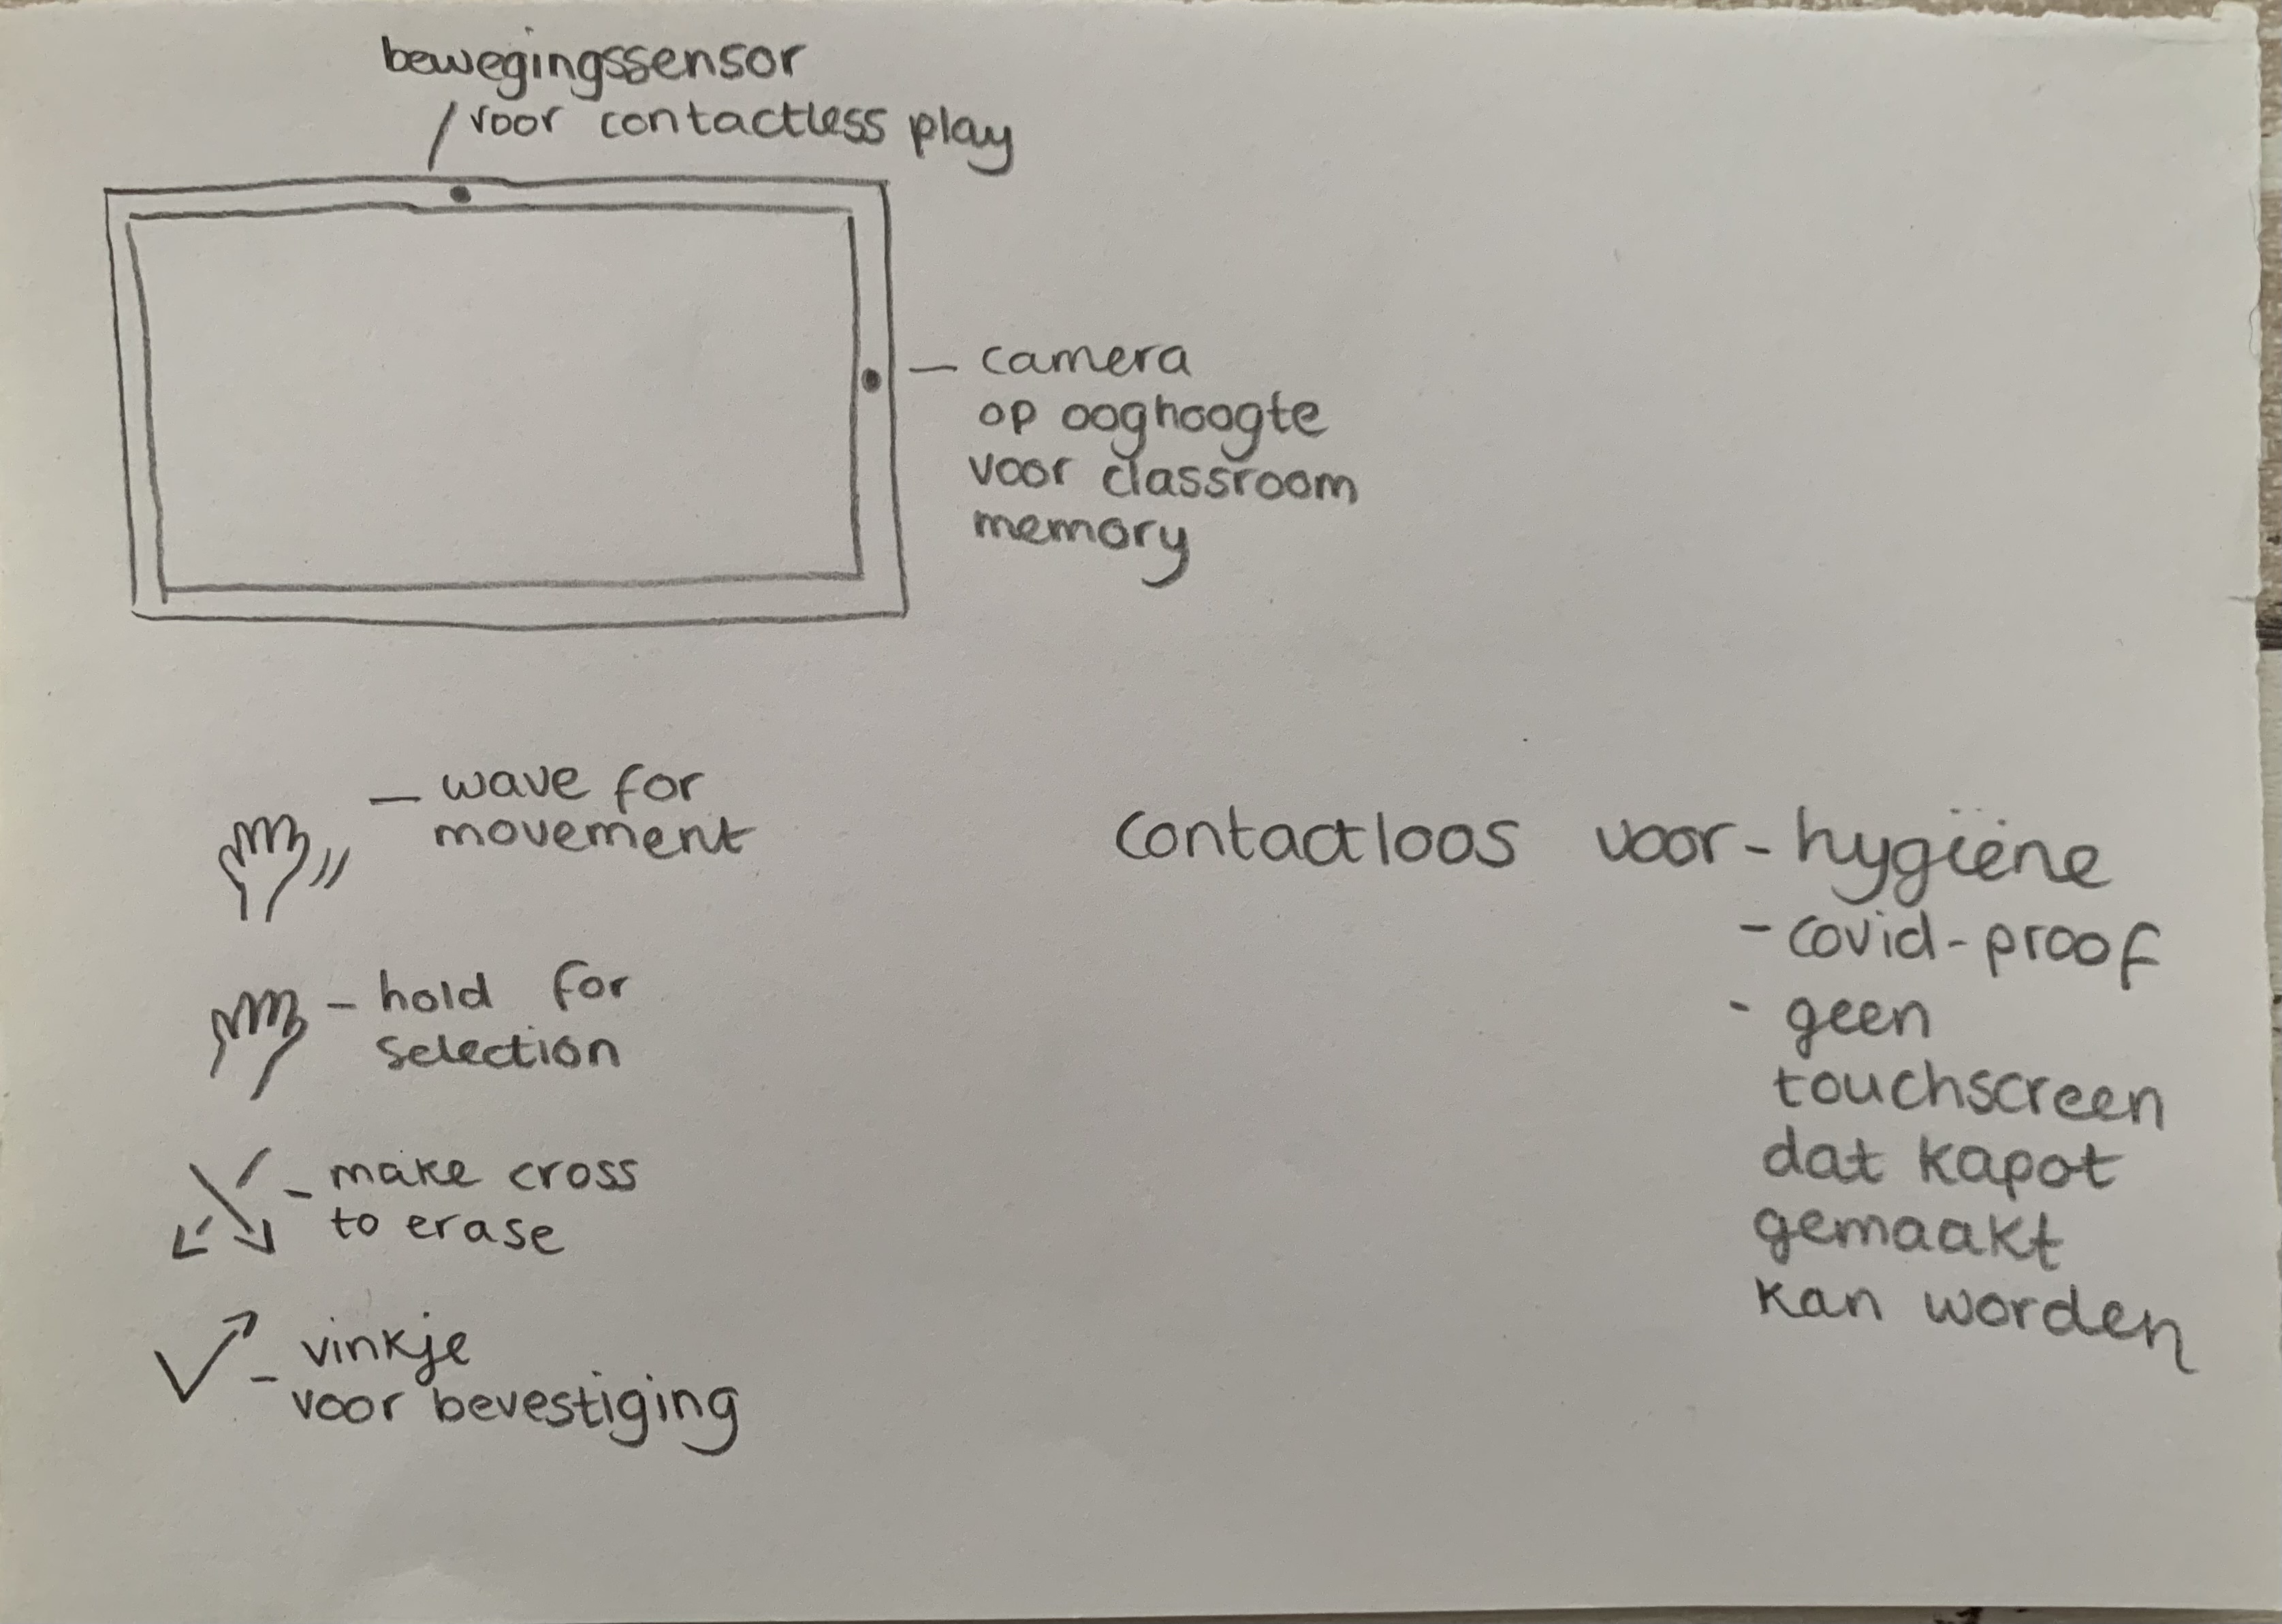 bewegingssensor
voor contactless play
camera
op ooghoogte
voor classroom
memory
wave for
movement
hold for
selection
make cross
to erase
vinkje
voor bevestiging
contactloos voor - hygiëne
- covid-proof
- geen
touchscreen
dat kapot
gemaakt
kan worden